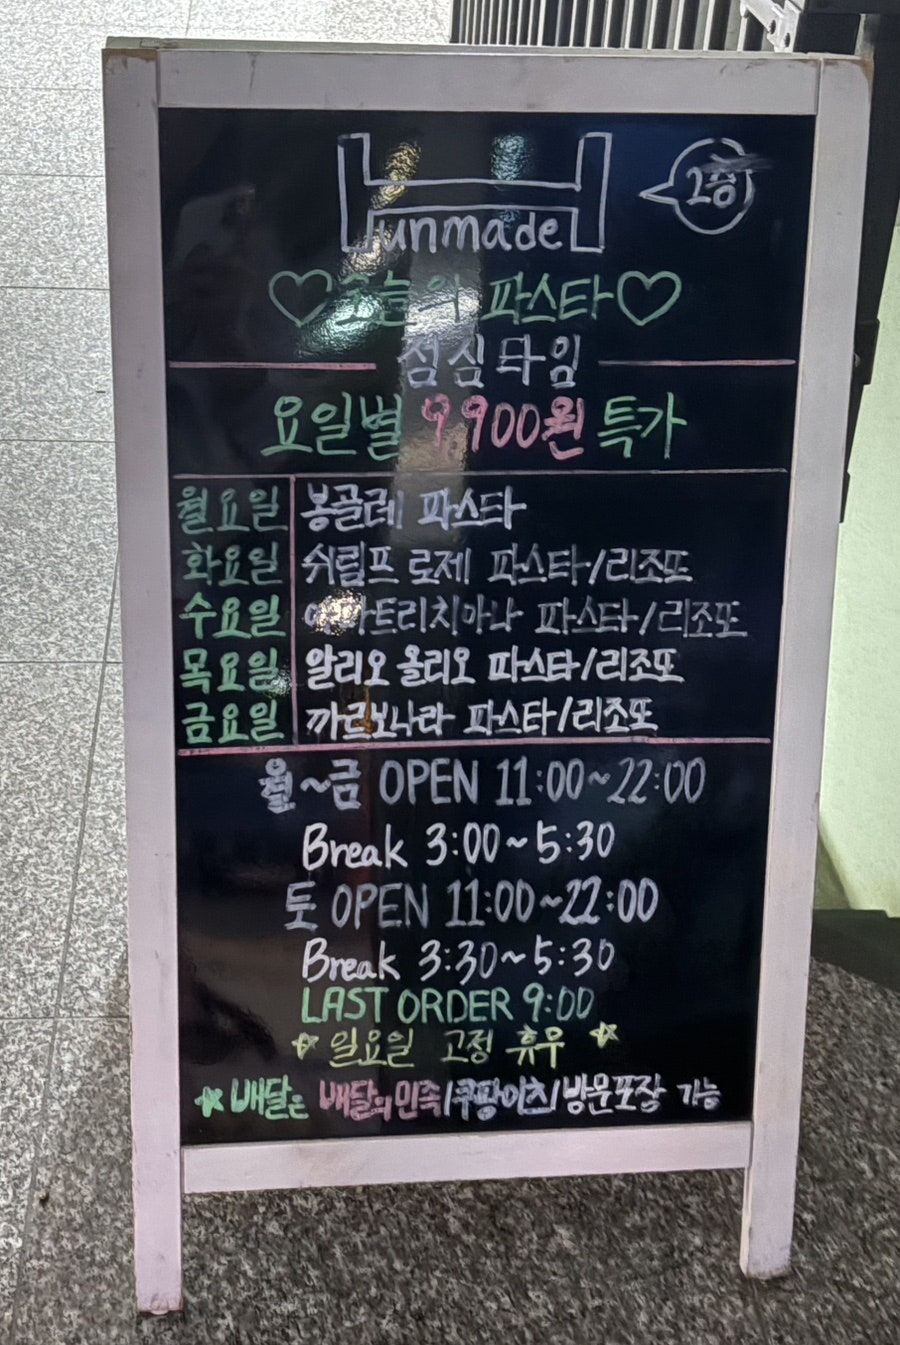 Hunmade
2층
♡오늘의 파스타♡
점심타임
요일별 9900원 특가
월요일 봉골레 파스타
화요일 쉬림프 로제 파스타/리조또
수요일 아마트리치아나 파스타/리조또
목요일 알리오 올리오 파스타/리조또
금요일 까르보나라 파스타/리조또
월~금 OPEN 11:00~22:00
Break 3:00~5:30
토 OPEN 11:00~22:00
Break 3:30~5:30
LAST ORDER 9:00
☆일요일 고정 휴무☆
☆배달은 배달의민족/쿠팡이츠/방문포장 가능